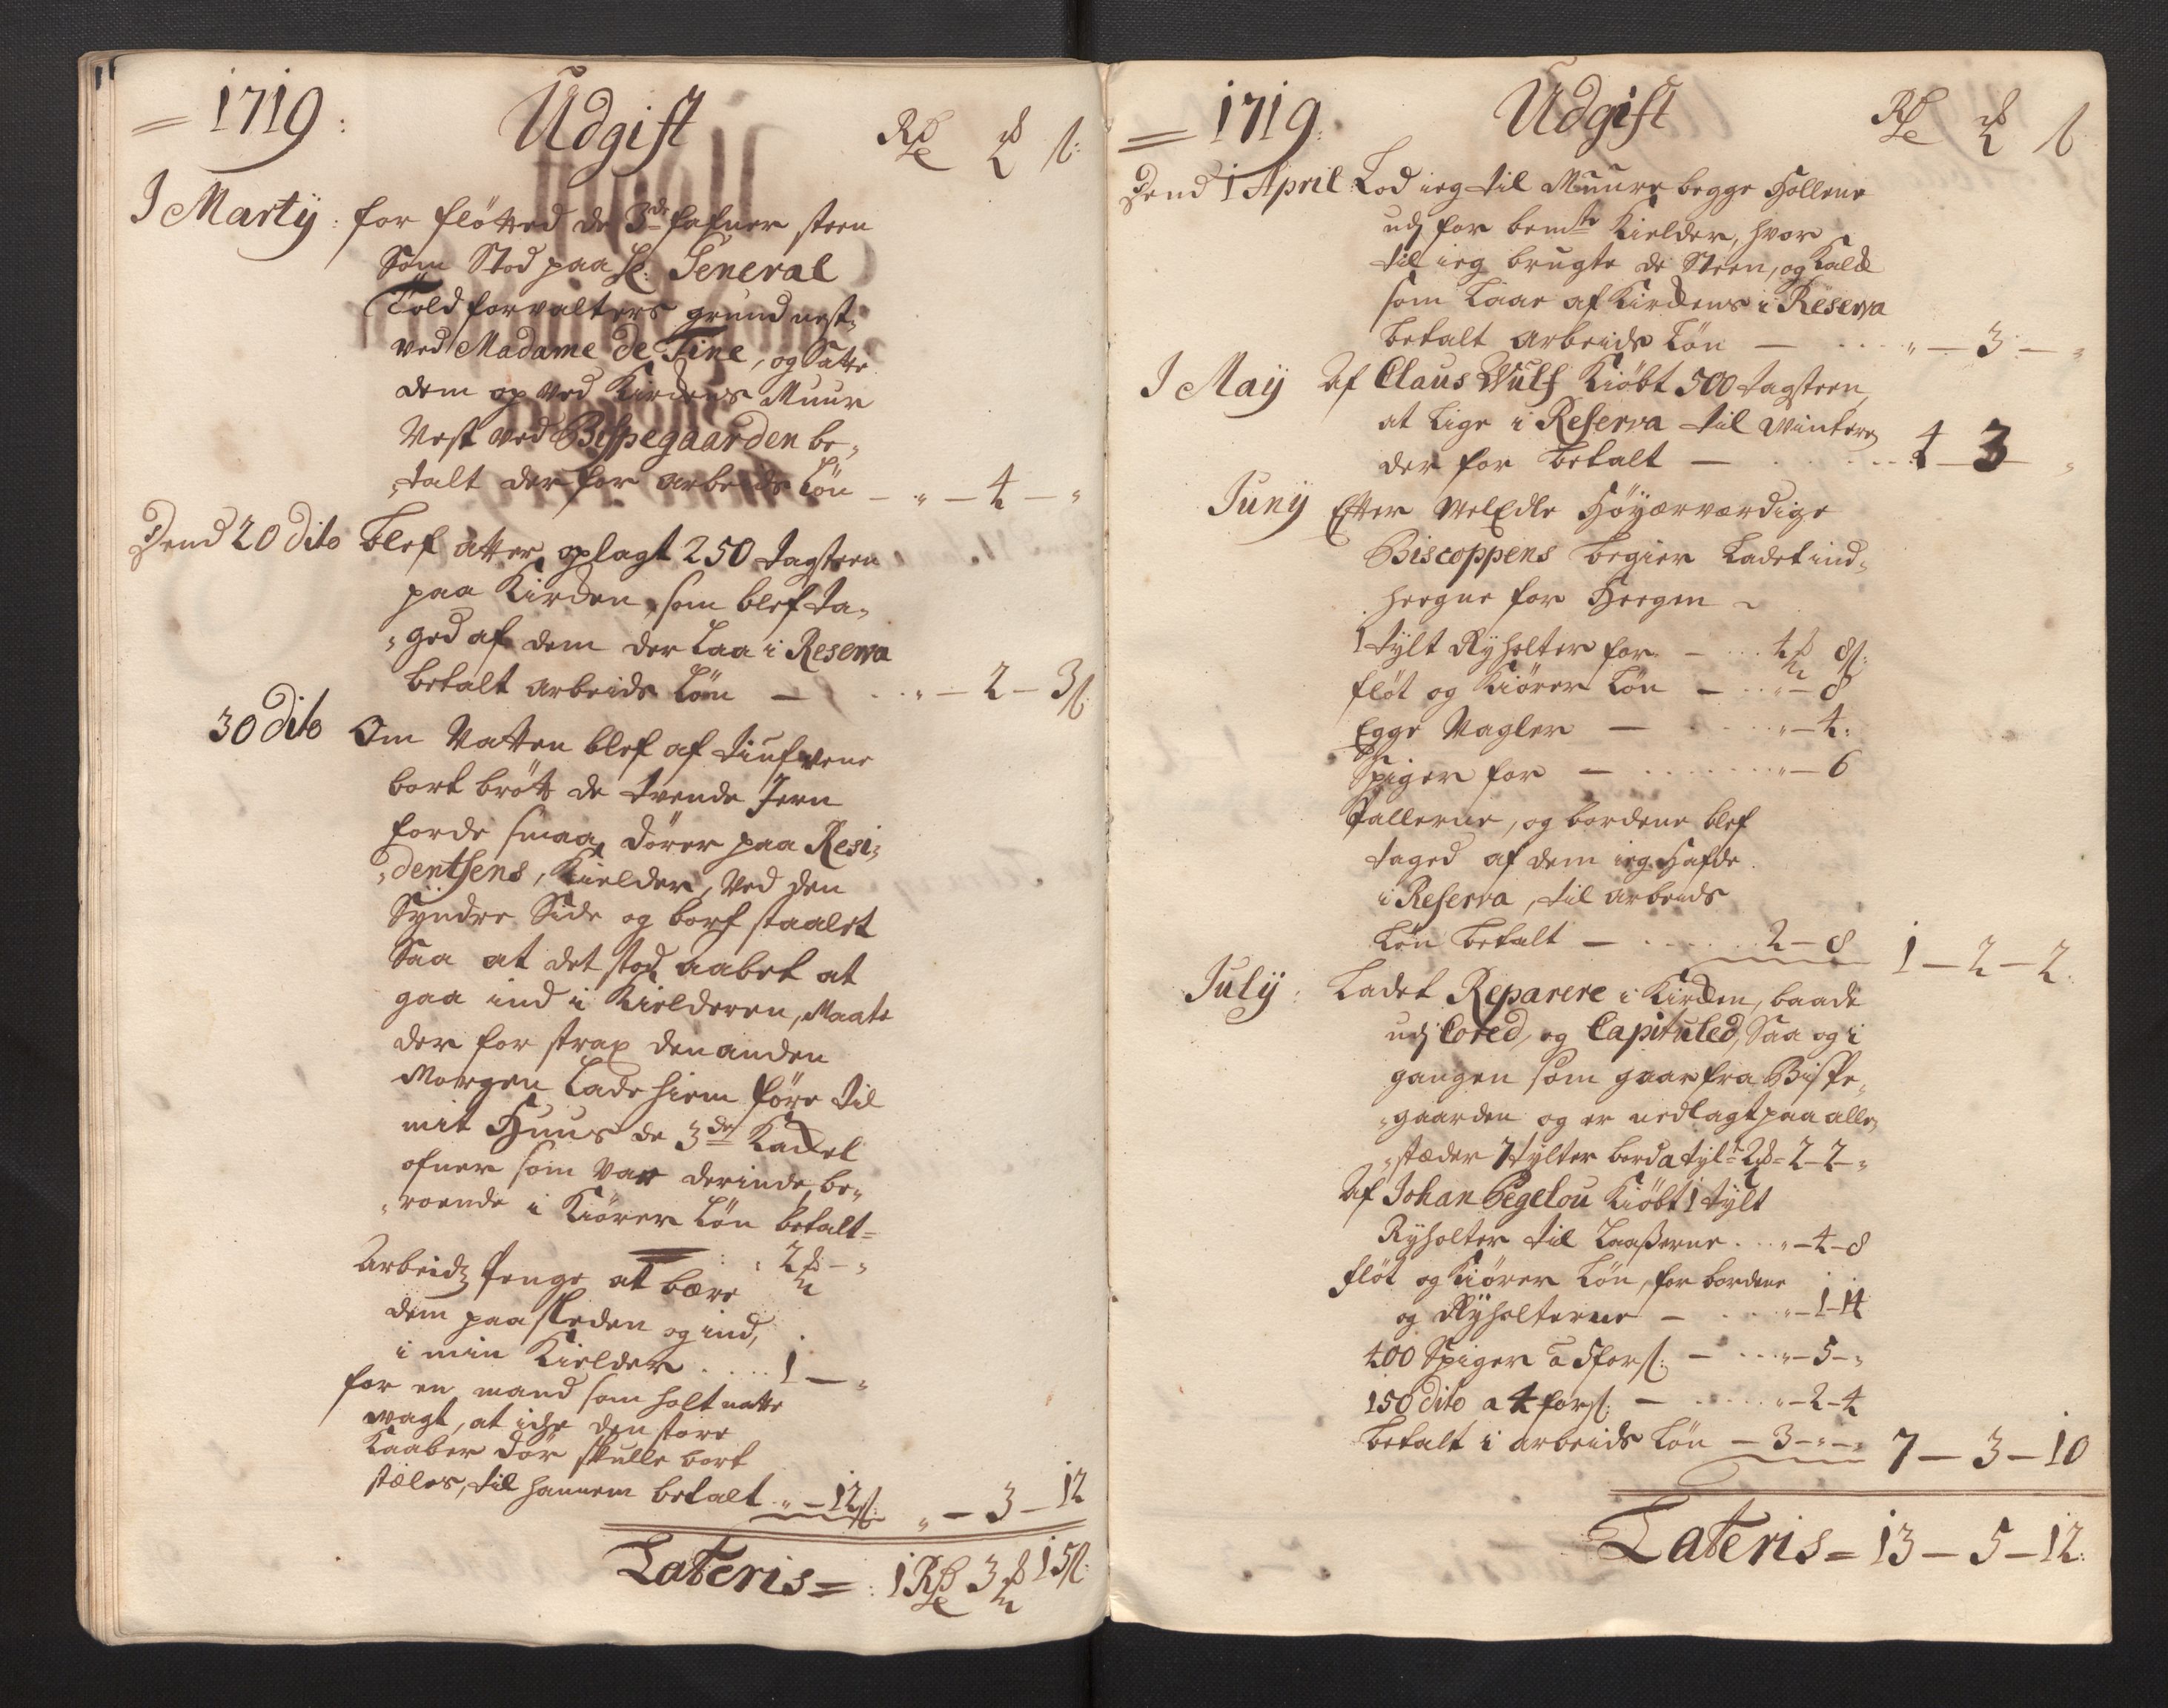 1719: Udgift Rd ℳ ß:
I Martÿ: for fløtted de 3de fafner steen
Som Stod paa Hr: General
Toldforvalters grund nest
ved Madame de Fine, og Satte
dem op ved Kirckens Muur
Nest ved Bispegaarden be„
„talt der for arbeids Løn — „ — 4 — „
Dend 20 dito blef atter oplagt 250 tagsteen
paa Kircken, som blef ta„
„ged af dem der Laa i Reserva
betalt arbeids Løn — „ — 2 — 3 ß
30 dito Om Natten blef af tiufvene
bort brøt de tvende Jern
forde smaa dører paa Resi„
„dentsens Kielder, ved den
Syndre Side og bort staalet
Saa at det stod aabet at
gaa ind i Kielderen, Maate
der for strax den anden
Morgen Lade hiem føre til
mit Huus de 3de Kackel
ofner som var derinde be„
„roende i Kiører Løn betalt
2 ℳ — „
Arbeids Penge at bære
dem paa Sleden og ind
i min Kielder .... 1 — „
for en mand som holt natte
wagt, at icke den store
Kaaber dør skulle bort
stæles, til hannem betalt „ — 12 ß „ — 3 — 12
Lateris = 1 Rd 3 ℳ 15 ß:
1719: Udgift Rd ℳ ß
Dend 1 April Lod ieg til Muure begge Hollene
udj for bemte Kielder, hvor
til ieg brugte de Steen, og Kalck
som Laae af Kirckens i Reserva
betalt arbeids Løn — „ — 3 — „
I Maÿ Af Claus Wulf Kiøbt 500 tagsteen
at Lige i Reserva til winteren
der for betalt — 4 — 3 — „
Junÿ Efter WelEdle Høÿærværdige
Biscoppens begier Ladet ind„
hegne for Haugen
1 tylt Ryholter for — 4 ℳ 8 ß:
fløt og Kiører Løn — „ — 8
Egge Nagler — „ — 4:
Spiger for — „ — 6
Stallerne, og bordene blef
taged af dem ieg Hafde
i Reserva, til arbeids
Løn betalt — 2 — 8 1 — 2 — 2
Julÿ: Ladet Reparere i Kircken, baade
udj Cored, og Capituled, Saa og i
gangen som gaar fra Bispe„
„gaarden og er nedlagt paa alle
„stæder 7 tylter bord a tylt 2 ℳ = 2 — 2 — „
Af Johan Pegelou Kiøbt 1 tÿlt
Ryholter til Laaserne .. „ — 4 — 8
fløt og Kiører Løn, for bordene
og Ryholterne — „ — 1 — 14
400 Spiger a 5 for ß: — „ — 5 — „
150 dito a 4 for ß: — „ — 2 — 4
betalt i arbeids Løn — 3 — „ — „ 7 — 3 — 10
Lateris = 13 — 5 — 12: